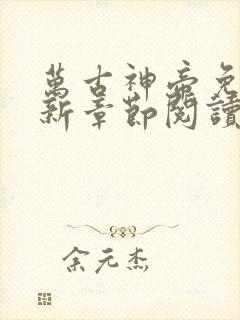 萬古神帝免
新章節閱讀
余元杰